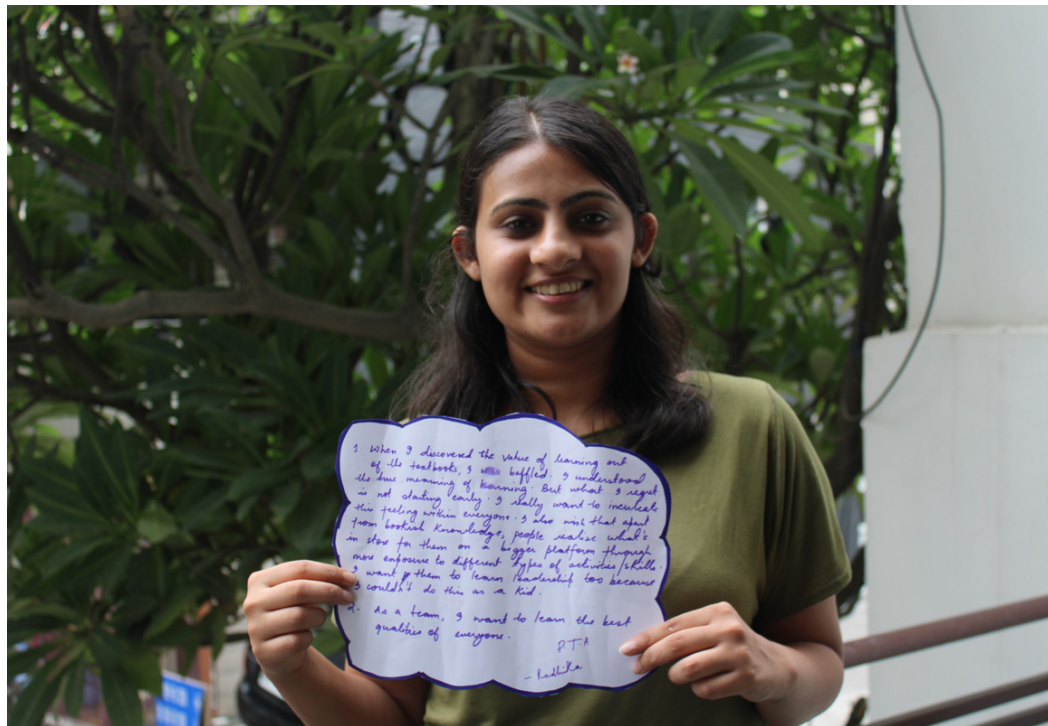 1 When I discovered the value of learning out
of the textbooks, I was baffled. I understood
the true meaning of learning. But what I regret
is not starting early. I really want to inculcate
this feeling within everyone. I also wish that apart
from bookish knowledge, people realise what's
in store for them on a bigger platform through
more exposure to different types of activities/skills.
I want them to learn leadership too because
I couldn't do this as a kid.
2. As a team, I want to learn the best
qualities of everyone.
P.T.A
- Radhika